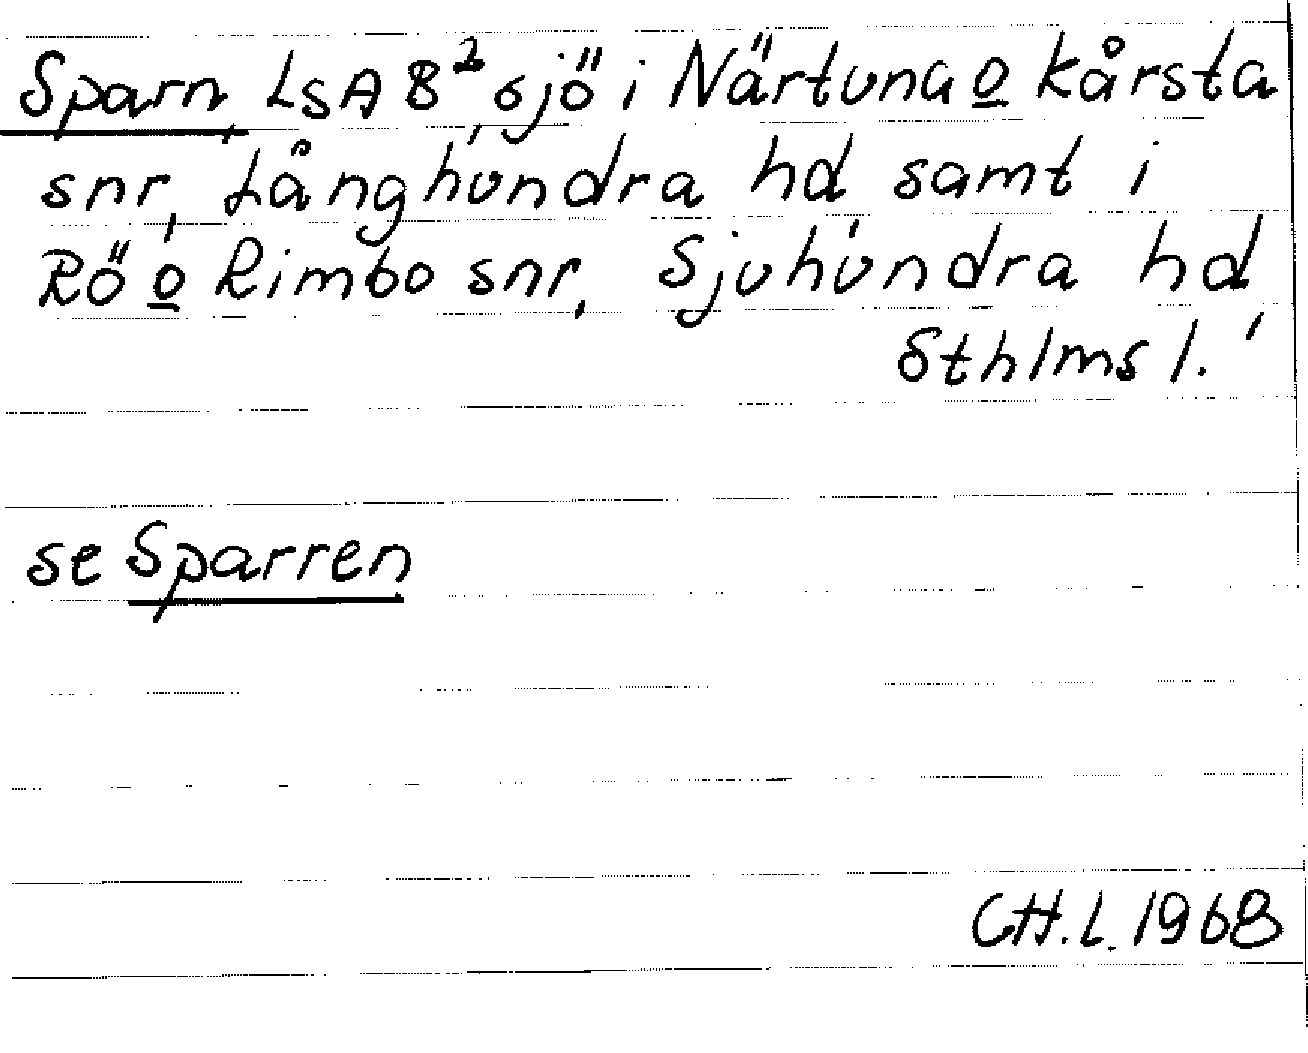 Sparn, LSA B², sjö i Närtuna o Kårsta
snr, Långhundra hd samt i
Rö o Rimbo snr, Sjuhundra hd,
Sthlms l.
se Sparren
CH.L. 1968